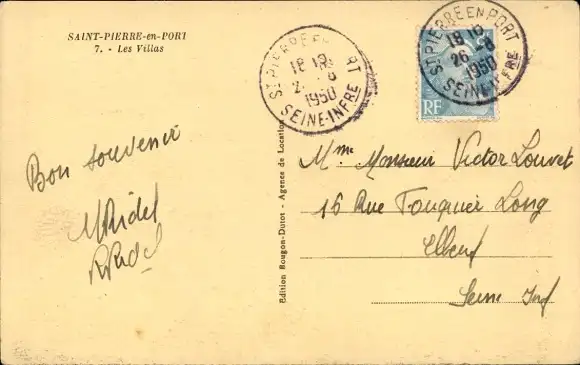 SAINT-PIERRE-en-PORT
7. - Les Villas
ST PIERRE EN PORT
18 10
2 - 8
1950
SEINE-INFRE
ST PIERRE EN PORT
18 10
26 - 8
1950
SEINE-INFRE
RF
Bon souvenir
MRidel
RRidel
Edition Rougon-Dutot - Agence de Location
Mme Monsieur Victor Louvet
16 Rue Fouquier Long
Elbeuf
Seine Inf